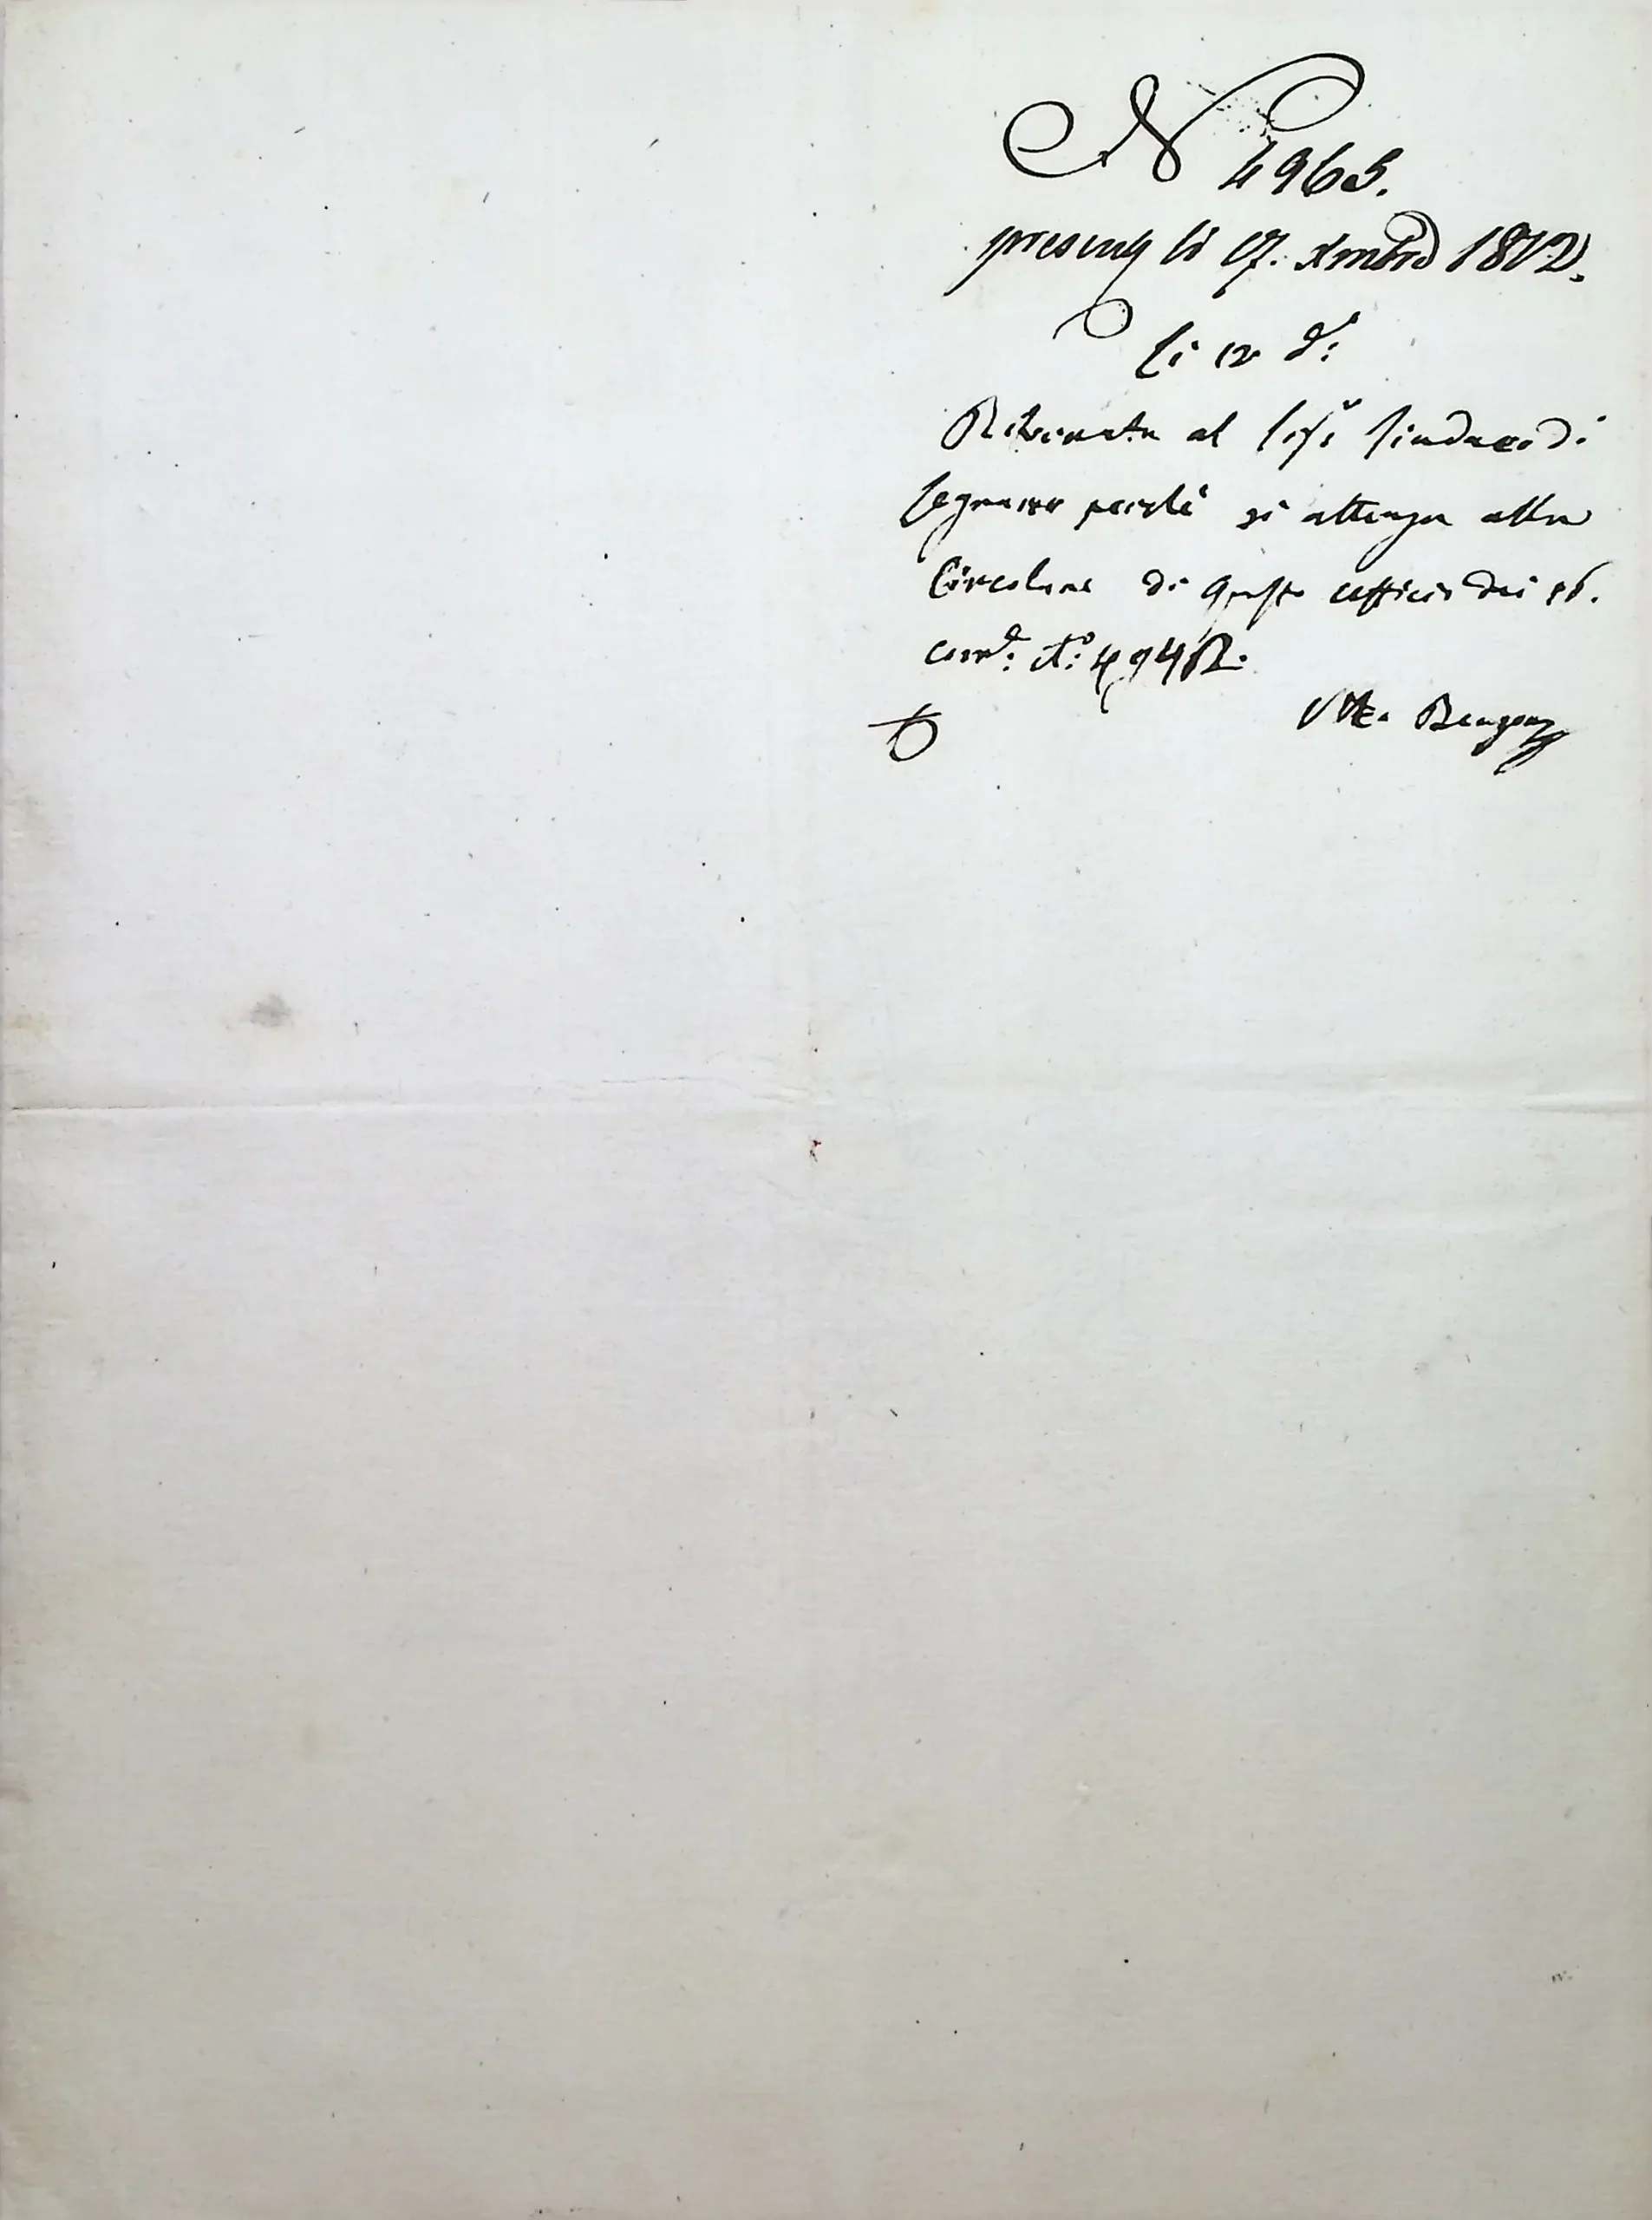 N 4965.
present li 17. Xmbre 1812.
li 12 d:
Ritornata al Sigr Sindaco di
Legnano perché si attenga alla
Circolare di questo ufficio dei 16.
corre: N: 4942.